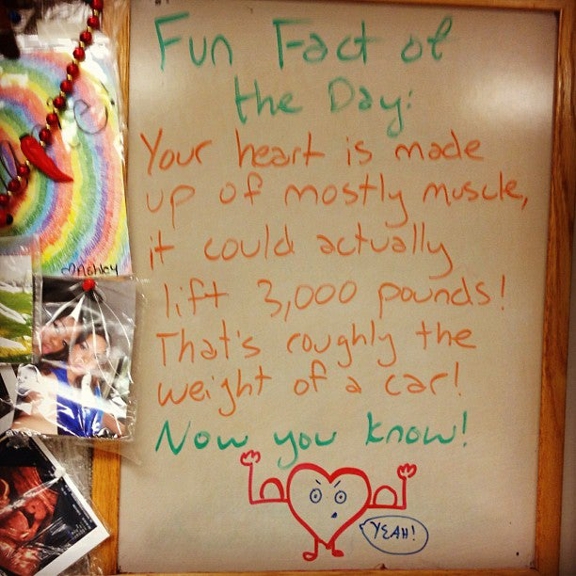 Fun Fact of
the Day:
Your heart is made
up of mostly muscle,
it could actually
lift 3,000 pounds!
That's roughly the
weight of a car!
Now you know!
YEAH!
Ashley